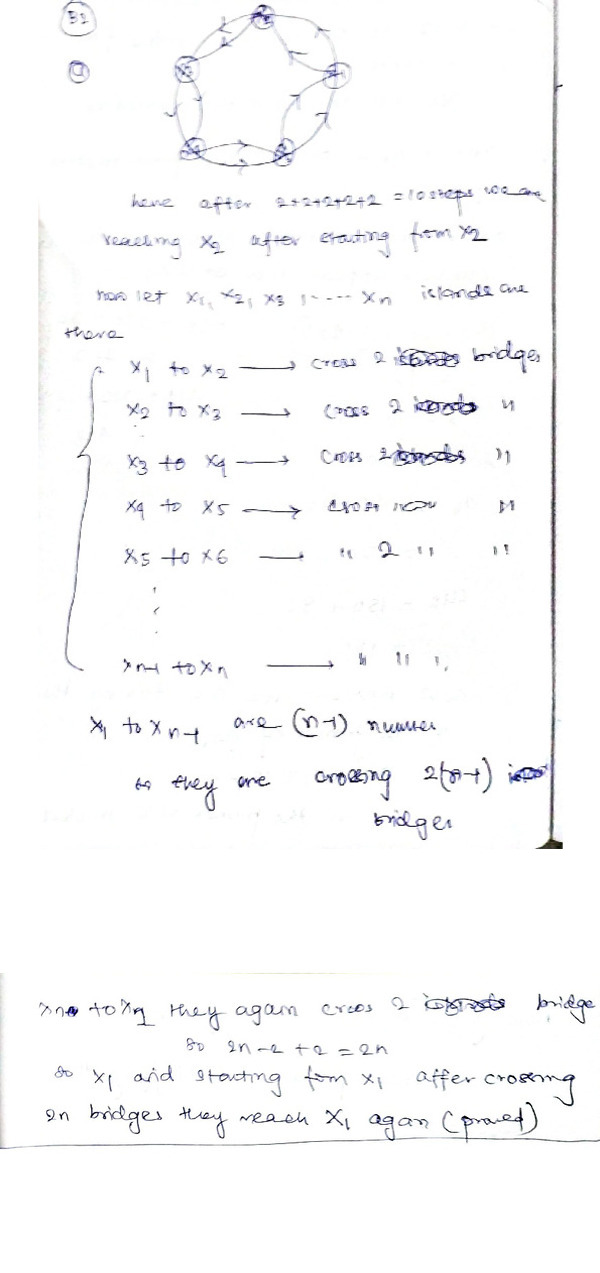 B2
a
here after 2+2+2+2+2 = 10 steps we are
reaching x2 after starting from x2
now let x1, x2, x3, ..... xn islands are
there
x1 to x2 → cross 2 bridges
x2 to x3 → cross 2 "
x3 to x4 → cross 2 "
x4 to x5 → cross "
x5 to x6 — " 2 " "
xn-1 to xn → " " "
x1 to xn-1 are (n-1) number
so they are crossing 2(n-1)
bridges
to x1 they again cross 2 bridge
so 2n-2+2 = 2n
so x1 and starting from x1 after crossing
2n bridges they reach x1 again (proved)